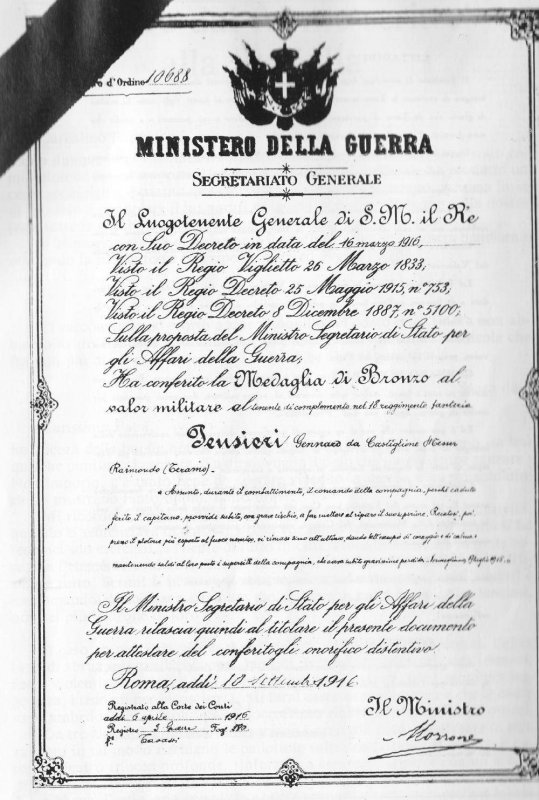 d'Ordine 10688
MINISTERO DELLA GUERRA
SEGRETARIATO GENERALE
Il Luogotenente Generale di S.M. il Re
con Suo Decreto in data del 16 marzo 1916,
Visto il Regio Viglietto 26 Marzo 1833;
Visto il Regio Decreto 25 Maggio 1915, n° 753,
Visto il Regio Decreto 8 Dicembre 1887, n° 5100;
Sulla proposta del Ministro Segretario di Stato per
gli Affari della Guerra;
Ha conferito la Medaglia di Bronzo al
valor militare al tenente di complemento nel 18° reggimento fanteria
Pensieri Gennaro da Castiglione Messer
Raimondo (Teramo)-
" Assunto, durante il combattimento, il comando della compagnia, perchè caduto
ferito il capitano, provvide subito, con grave rischio, a far mettere al riparo il suo superiore. Recatosi poi
presso il plotone più esposto al fuoco nemico, vi rimase sino all'ultimo, dando bell'esempio di coraggio e di calma e
mantenendo saldi al loro posto i superstiti della compagnia, che aveva subito gravissime perdite. luglio 1915. "
Il Ministro Segretario di Stato per gli Affari della
Guerra rilascia quindi al titolare il presente documento
per attestare del conferitogli onorifico distintivo.
Roma, addì 18 Settembre 1916
Registrato alla Corte dei Conti
addì 6 aprile 1916
Registro 2 Guerra Fog.
f.
Il Ministro
Morrone